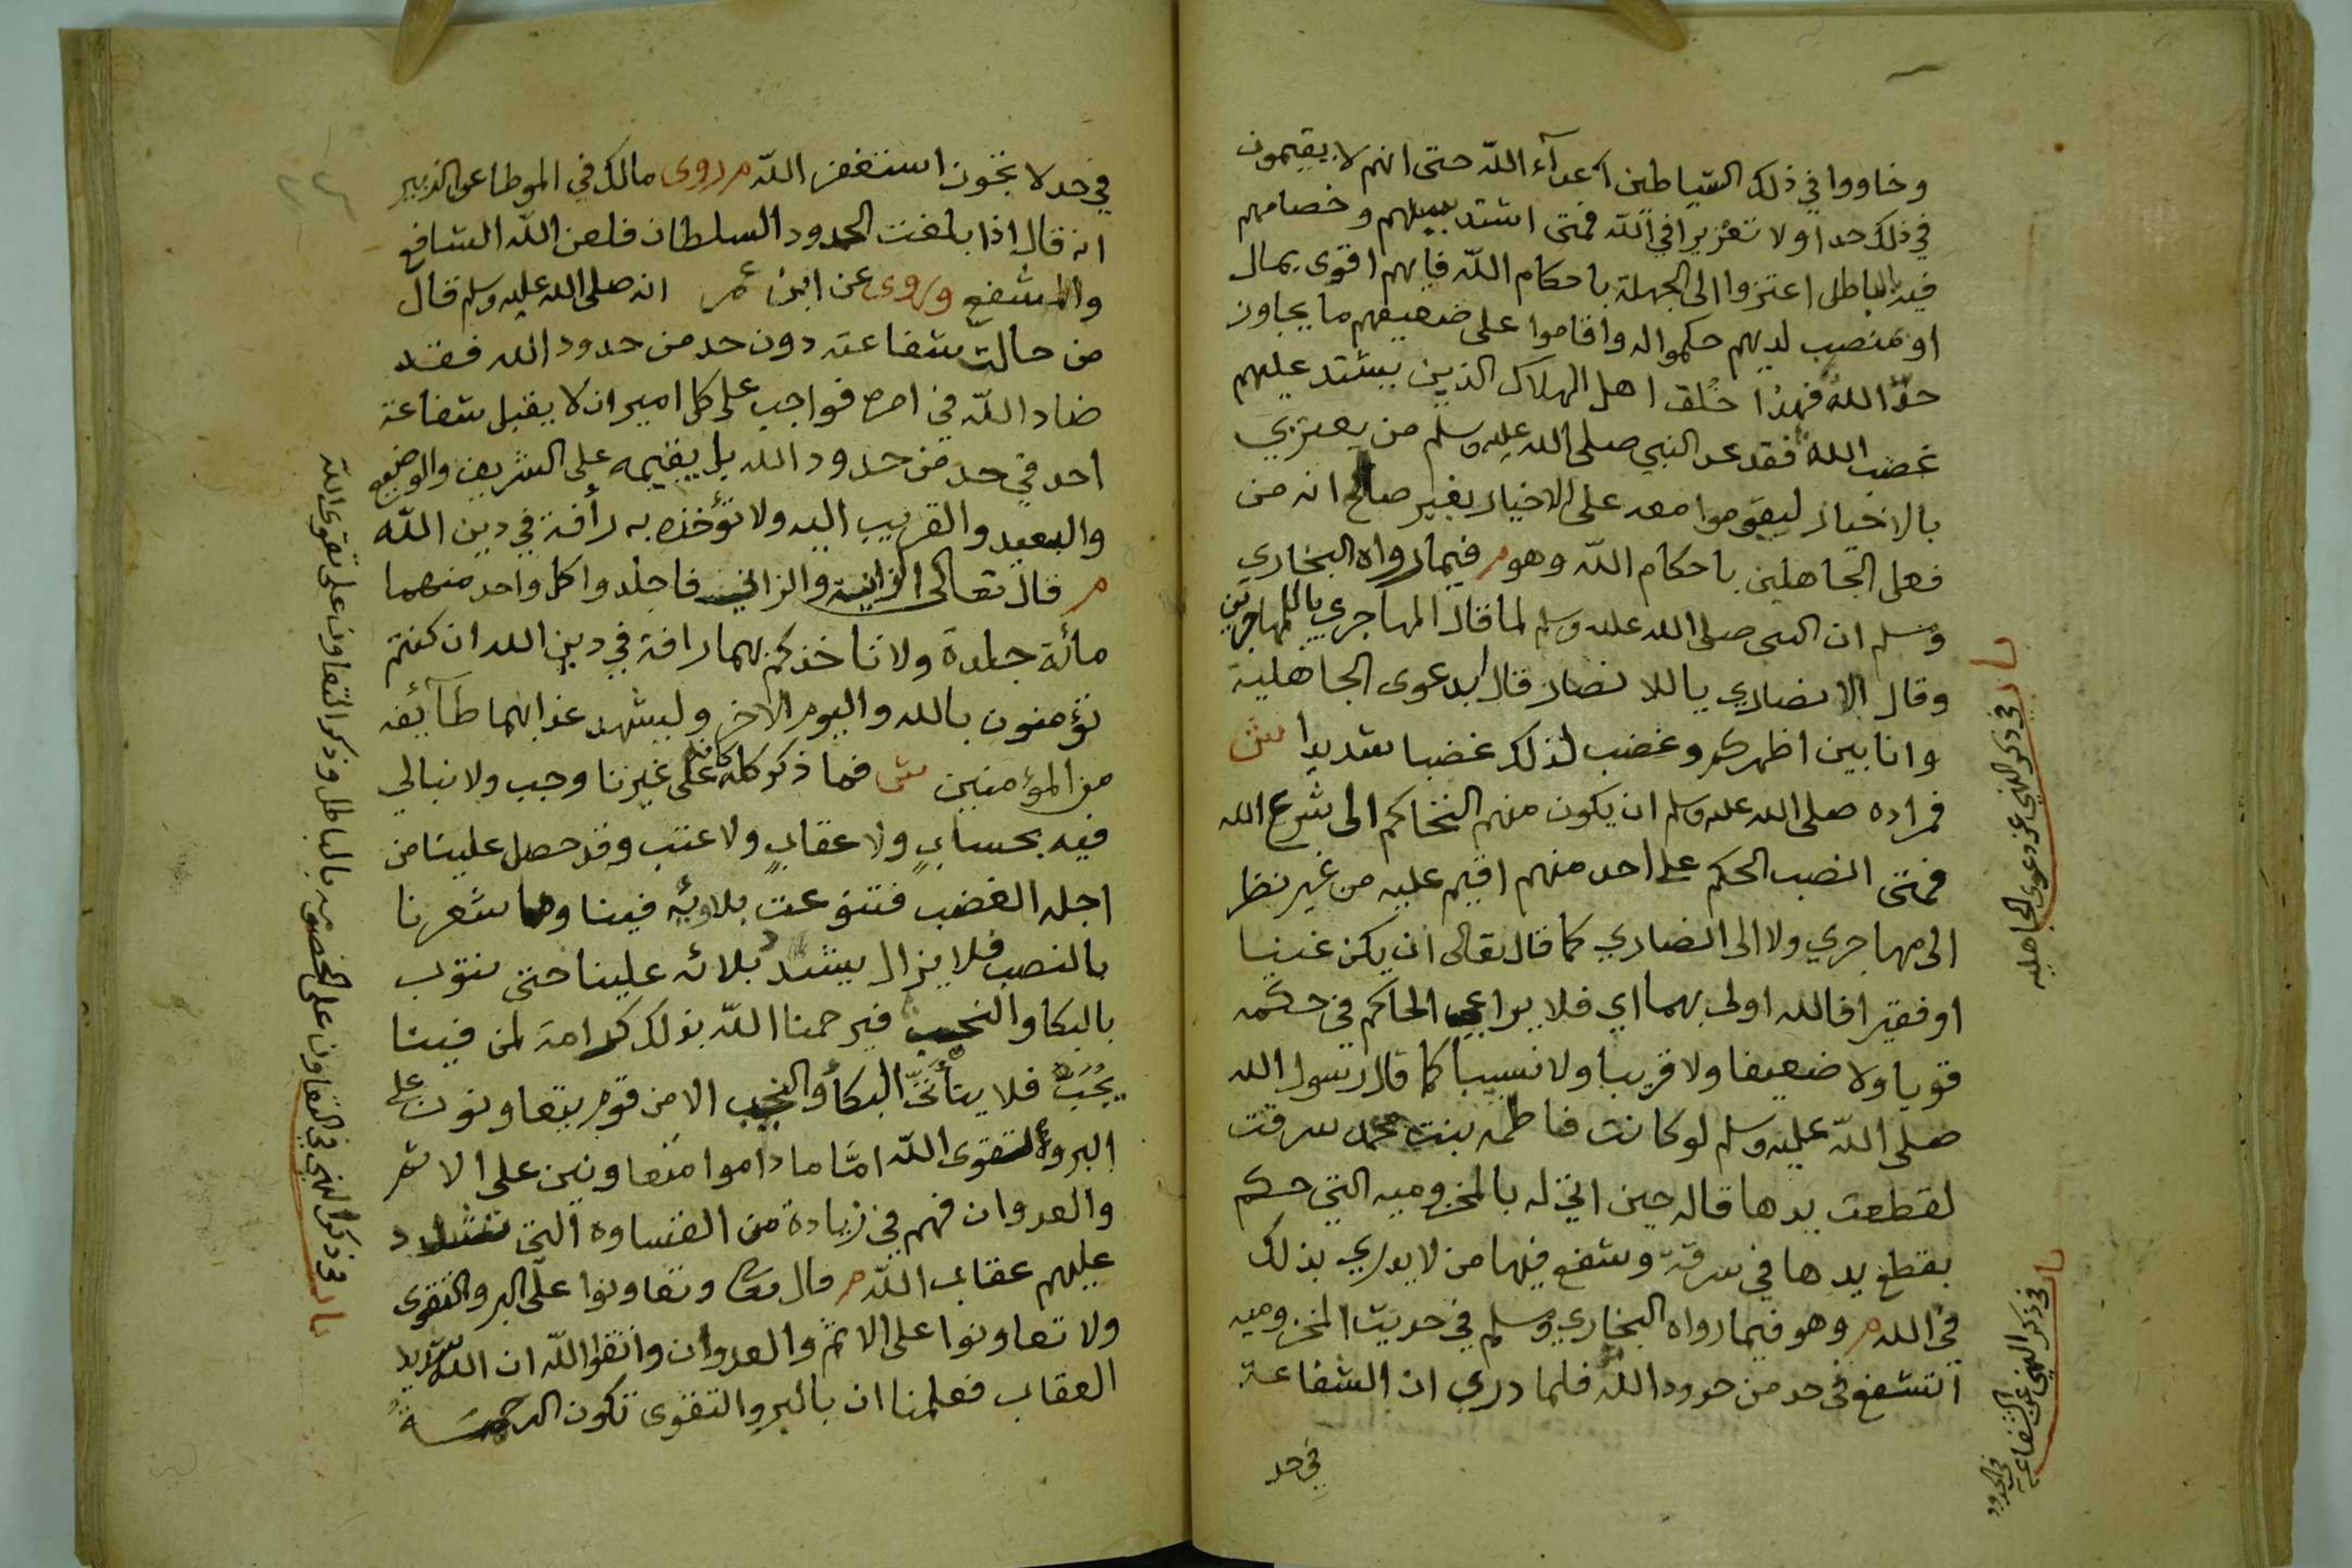 وخاووا في ذلك الشياطين اعدآء اللّه حتى انهم لا يقيمون
في ذلك حدا ولا تعزيرا في اللّه فمتى اشتد بينهم وخصامهم
فيه بالباطل اعتزوا الى الجهلة باحكام اللّه فايهم اقوى بمال
او منصب لديهم حكموا له واقاموا على ضعيفهم ما يجاوز
حدّ اللّه فهذا خُلق اهل الهلاك الذين يشتد عليهم
غضب اللّه فقد عد النبي صلى الله عليه وسلم من يعتزي
بالاخيار ليقوموا معه على الاخيار بغير صالح انه من
فعل الجاهلين باحكام اللّه وهو م فيما رواه البخاري
ومسلم ان النبي صلى الله عليه وسلم لما قال المهاجري ياللمهاجرين
وقال الانصاري ياللانصار قال ابدعوى الجاهلية
وانا بين اظهركم وغضب لذلك غضبا شديدا ش
فمراده صلى الله عليه وسلم ان يكون منهم التحاكم الى شرع الله
فمتى انصب الحكم على احد منهم اقيم عليه من غير نظر
الى مهاجري ولا الى انصاري كما قال تعالى ان يكن غنيا
او فقيرا فالله اولى بهما اي فلا يراعي الحاكم في حكمه
قويا ولا ضعيفا ولا قريبا ولا نسيبا كما قال رسول الله
صلى اللّه عليه وسلم لو كانت فاطمه بنت محمد سرقت
لقطعت يدها قاله حين اتي له بالمخزوميه التي حكم
بقطع يدها في سرقة وشفع فيها من لا يدري بذلك
في الله م وهو فيما رواه البخاري ومسلم في حديث المخزوميه
اتشفع في حد من حدود اللّه فلما دري ان الشفاعة
في حد
باب في ذكر النهي عن دعوى الجاهليه
باب في ذكر النهي عن الشفاعة
في الحدود
في حد لا تجوز استغفر اللّه م روى مالك في الموطا عن الزبير
انه قال اذا بلغت الحدود السلطان فلعن اللّه الشافع
والمشفع وروى عن ابن عمر انه صلى الله عليه وسلم قال
من حالت شفاعته دون حد من حدود الله فقد
ضاد اللّه في امره فواجب على كل امير ان لا يقبل شفاعة
احد في حد من حدود الله بل يقيمه على الشريف والوضيع
والبعيد والقريب اليه ولا تؤخذه به رأفة في دين اللّه
م قال تعالى الزانية والزاني فاجلدوا كل واحد منهما
مائة جلدة ولا تاخذكم بهما رافة في دين الله ان كنتم
تؤمنون بالله واليوم الاخر وليشهد عذابهما طآئفه
من المؤمنين ش فما ذكر كله كانه على غيرنا وجب ولا نبالي
فيه بحساب ولا عقاب ولا عتب وقد حصل علينا من
اجله الغضب فتنوعت بلاويه فينا وما شعرنا
بالنصب فلا يزال يشتد بلائه علينا حتى نتوب
بالبكا والنحيب فيرحمنا اللّه بذلك كرامة لمن فينا
يحب فلا يتأتّى البكأ والنحيب الا من قوم يتعاونون على
البر والتقوى اللّه امّا ما داموا متعاونين على الاثم
والعدوان فهم في زيادة من القساوه التي تشدد
عليهم عقاب اللّه م قال تعالى وتعاونوا على البر والتقوى
ولا تعاونوا على الاثم والعدوان واتقوا اللّه ان اللّه شديد
العقاب فعلمنا ان بالبر والتقوى تكون الرحمة
باب في ذكر النهي في التعاون على الخصومه بالباطل وذكر التعاون على تقوى اللّه